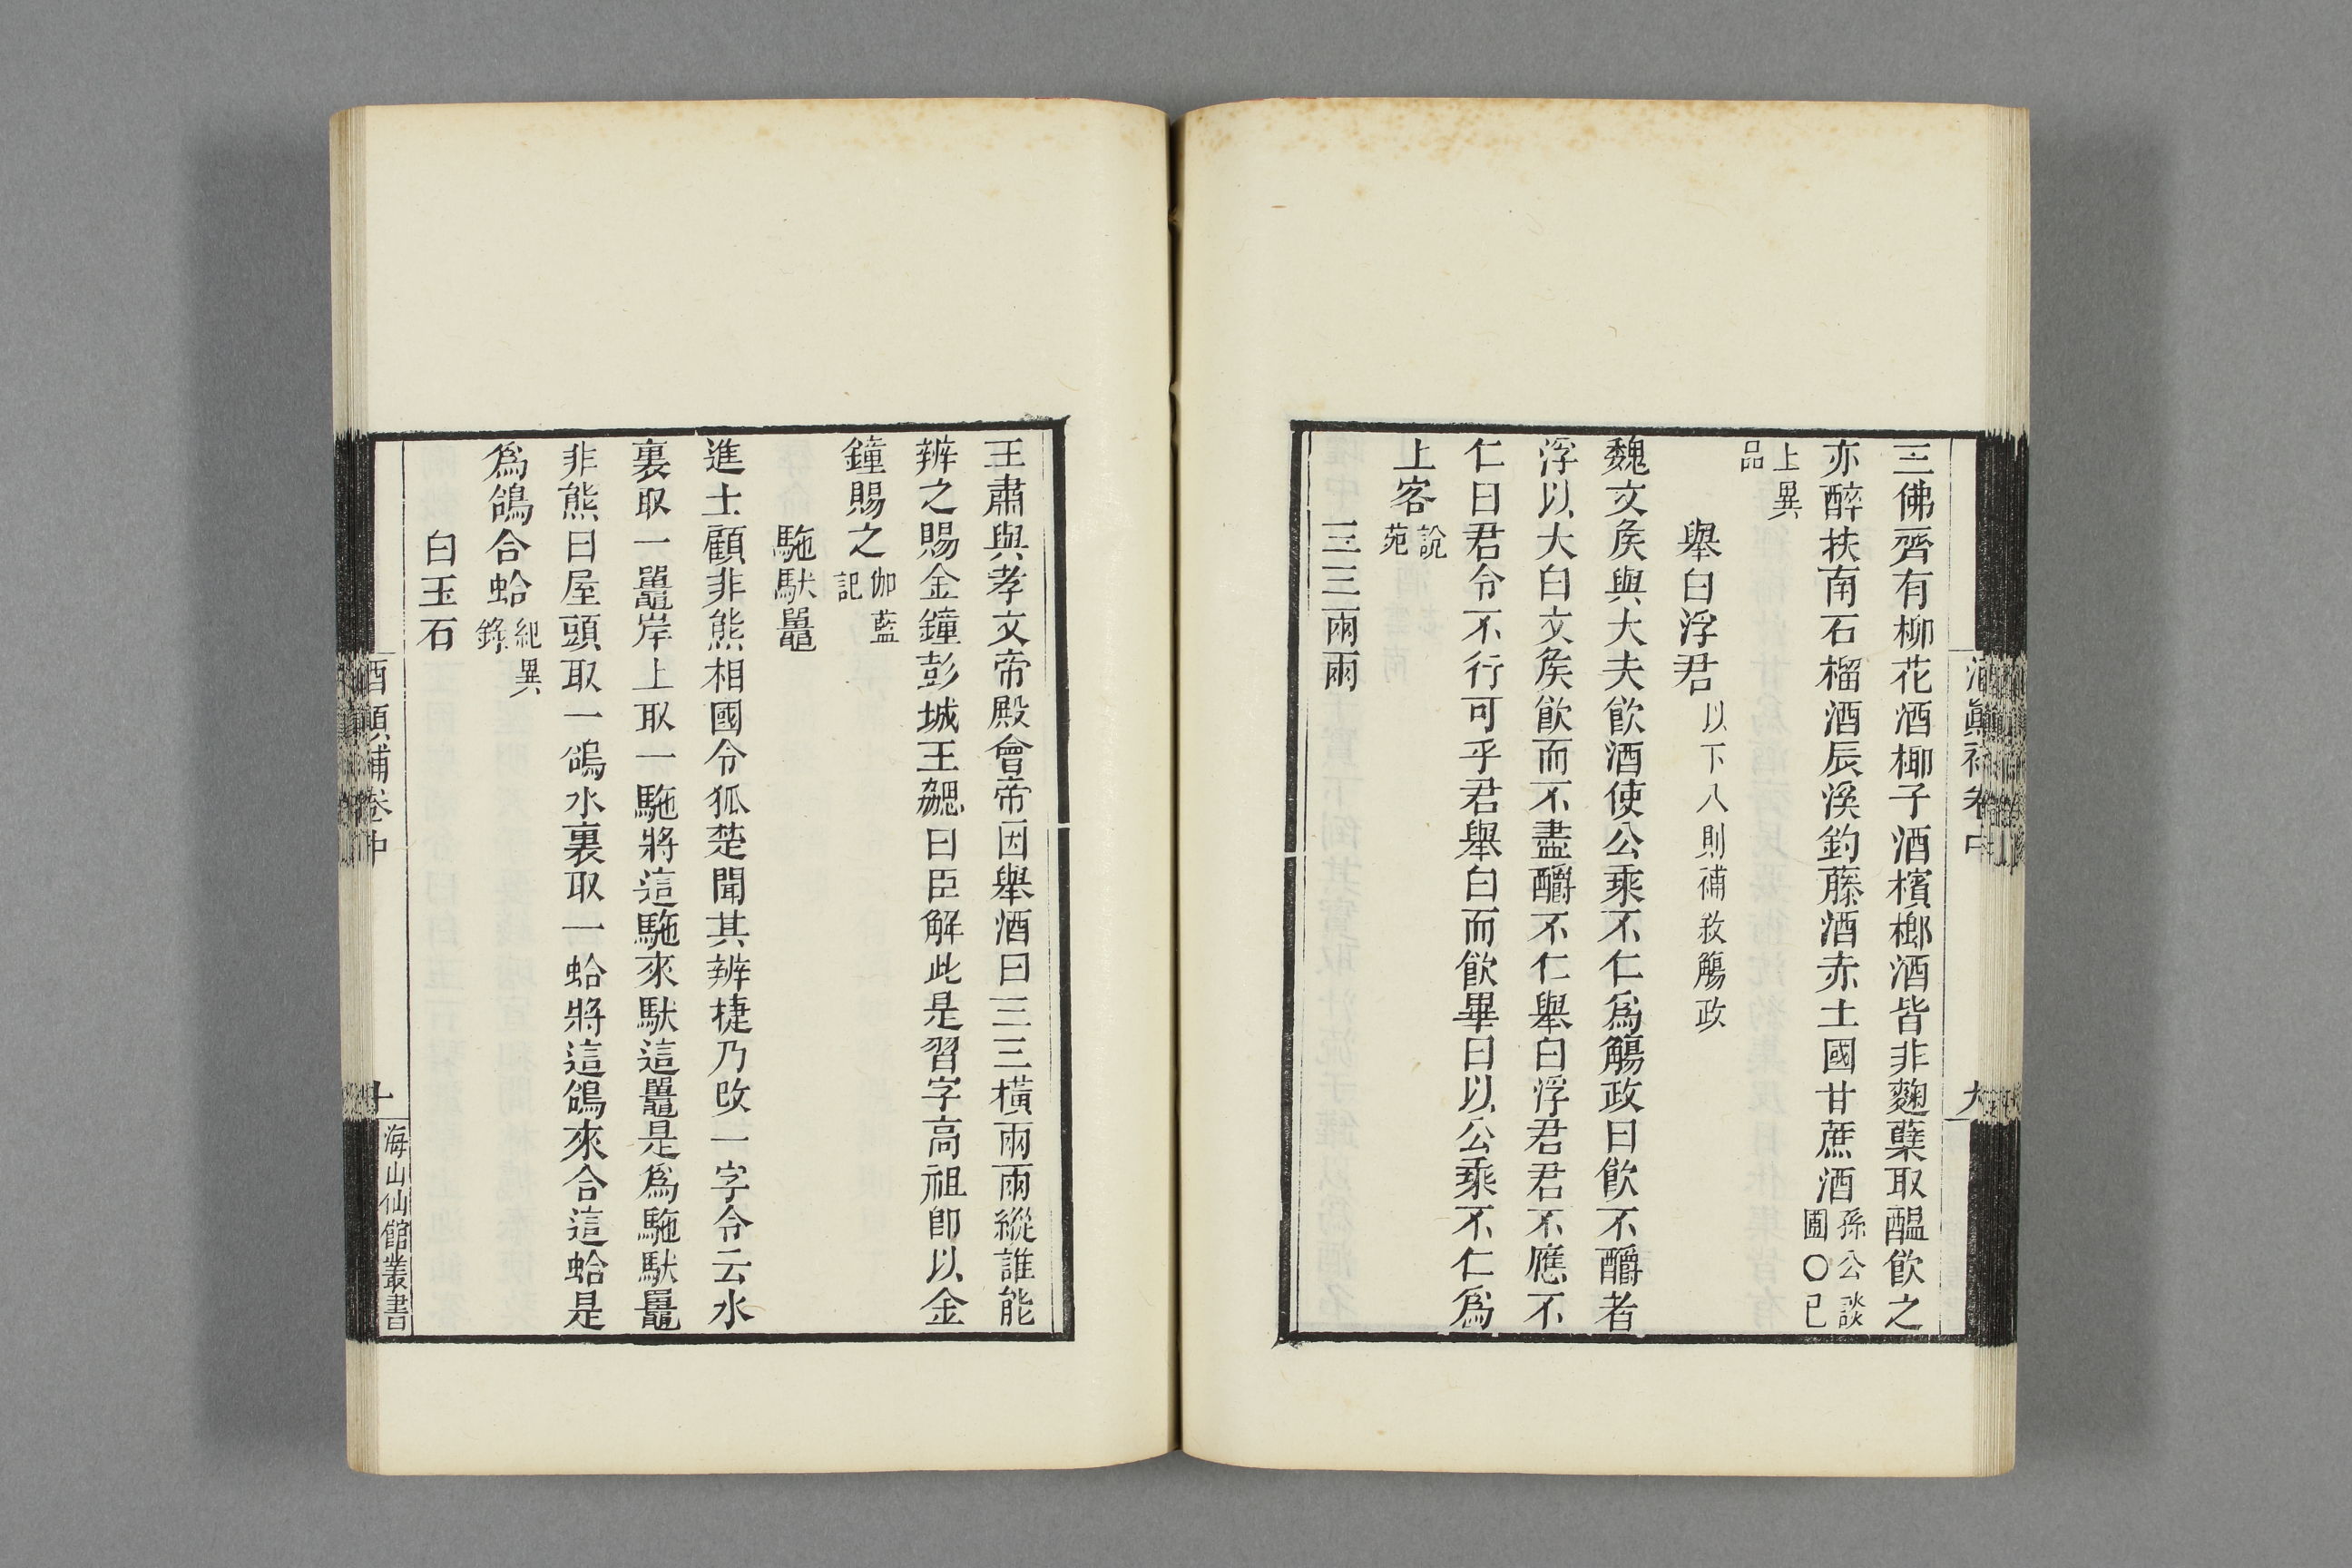 三佛齊有柳花酒椰子酒檳榔酒皆非麴糱取醖飮之
亦醉扶南石榴酒辰溪釣藤酒赤土國甘蔗酒孫公談圃〇已
上異品
舉白浮君以下八則補敘觴政
魏文矦與大夫飮酒使公乘不仁爲觴政曰飮不釂者
浮以大白文矦飮而不盡釂不仁舉白浮君君不應不
仁曰君令不行可乎君舉白而飮畢曰以公乘不仁爲
上客說苑
三三兩兩
王肅與孝文帝殿會帝因舉酒曰三三橫兩兩縱誰能
辨之賜金鐘彭城王勰曰臣解此是習字高祖卽以金
鐘賜之伽藍記
駞馱鼉
進士顧非熊相國令狐楚聞其辨捷乃改一字令云水
裏取一鼉岸上取一駞將這駞來馱這鼉是爲駞馱鼉
非熊曰屋頭取一鴿水裏取一蛤將這鴿來合這蛤是
爲鴿合蛤紀異錄
白玉石
酒顚補卷中
十
海山仙館叢書